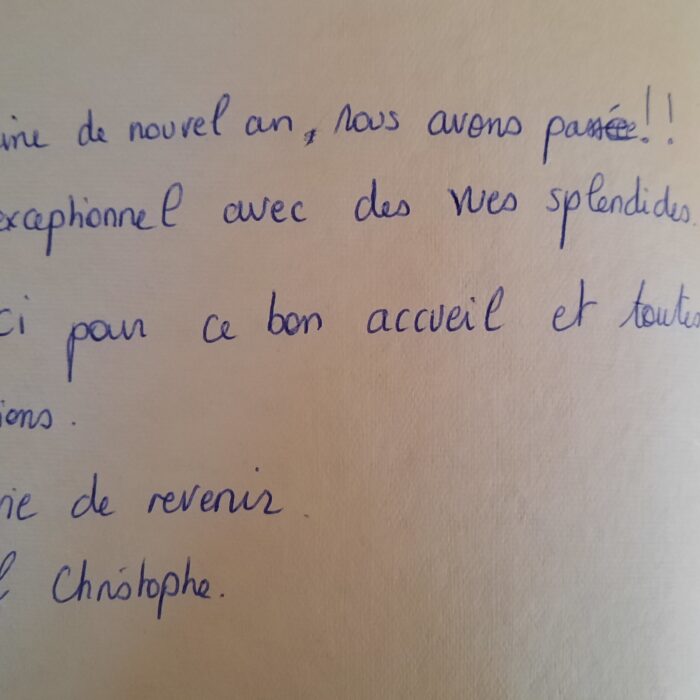 ine de nouvel an, nous avons passée!!
exceptionnel avec des vues splendides.
ci pour ce bon accueil et toutes
ions.
ie de revenir.
l Christophe.